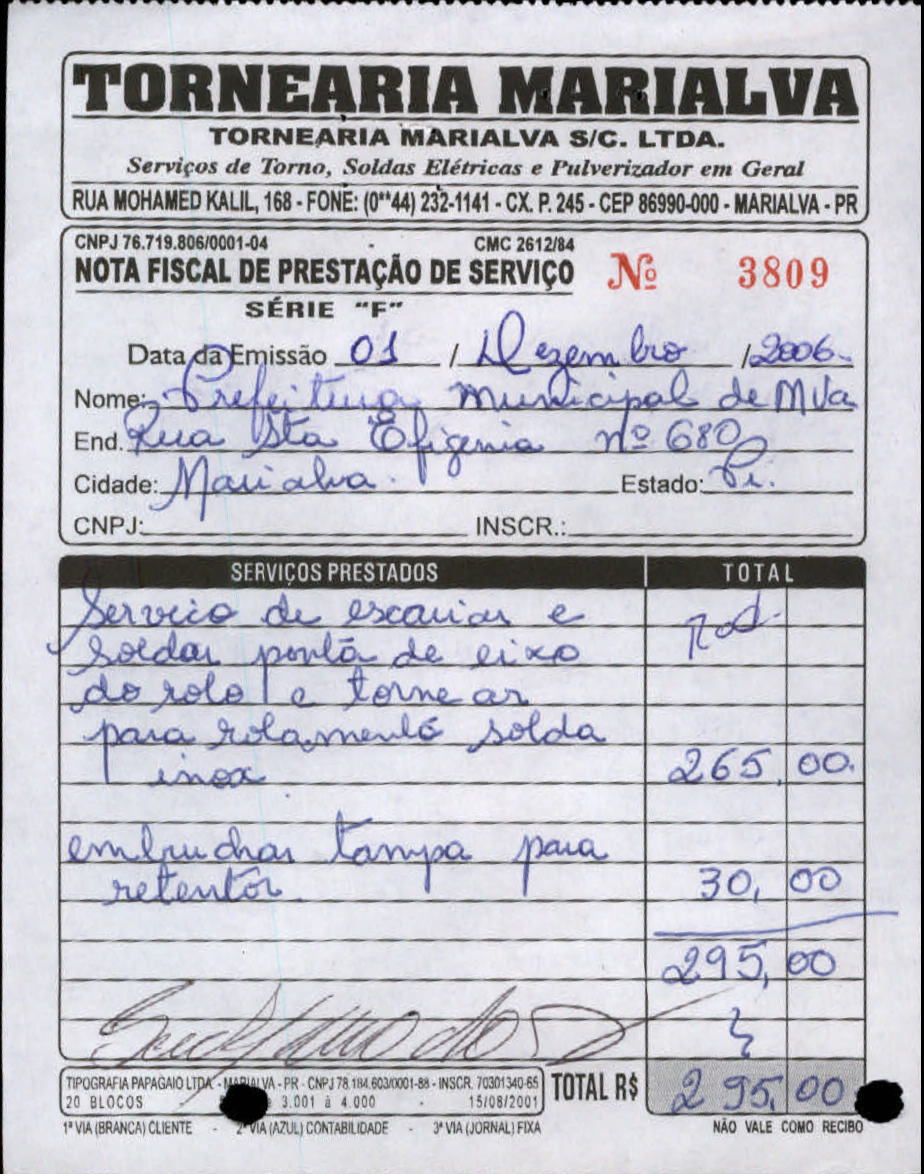 TORNEARIA MARIALVA
TORNEARIA MARIALVA S/C. LTDA.
Serviços de Torno, Soldas Elétricas e Pulverizador em Geral
RUA MOHAMED KALIL, 168 - FONE: (0**44) 232-1141 - CX. P. 245 - CEP 86990-000 - MARIALVA - PR
CNPJ 76.719.806/0001-04 - CMC 2612/84
NOTA FISCAL DE PRESTAÇÃO DE SERVIÇO Nº 3809
SÉRIE "F"
Data da Emissão 01 / Dezembro / 2006
Nome: Prefeitura Municipal de Mva
End. Rua Sta Efigenia nº 680
Cidade: Marialva Estado: Pr.
CNPJ: INSCR.:
SERVIÇOS PRESTADOS TOTAL
Servico de escariar e
soldar ponta de eixo
do rolo e tornear
para rolamento solda
inox 265,00
embuchar tampa para
retentor 30,00
295,00
TIPOGRAFIA PAPAGAIO LTDA. - MARIALVA - PR - CNPJ 78.184.603/0001-88 - INSCR. 70301340-65
20 BLOCOS 3.001 à 4.000 - 15/08/2001
TOTAL R$ 295,00
1ª VIA (BRANCA) CLIENTE - 2ª VIA (AZUL) CONTABILIDADE - 3ª VIA (JORNAL) FIXA
NÃO VALE COMO RECIBO